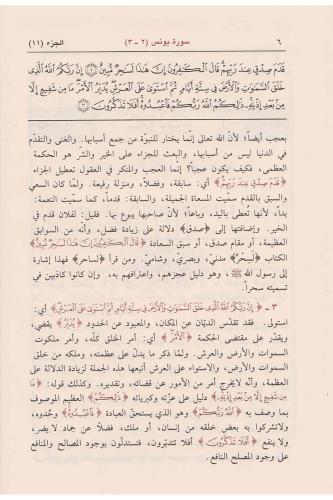 ٦ سورة يونس (٢ - ٣) الجزء (١١)
قَدَمَ صِدْقٍ عِندَ رَبِّهِمْ قَالَ الْكَافِرُونَ إِنَّ هَذَا لَسَاحِرٌ مُّبِينٌ ﴿٢﴾ إِنَّ رَبَّكُمُ اللَّهُ الَّذِي
خَلَقَ السَّمَاوَاتِ وَالْأَرْضَ فِي سِتَّةِ أَيَّامٍ ثُمَّ اسْتَوَى عَلَى الْعَرْشِ يُدَبِّرُ الْأَمْرَ مَا مِن شَفِيعٍ إِلَّا
مِن بَعْدِ إِذْنِهِ ذَلِكُمُ اللَّهُ رَبُّكُمْ فَاعْبُدُوهُ أَفَلَا تَذَكَّرُونَ ﴿٣﴾
بعجب أيضاً؛ لأنّ الله تعالى إنما يختار للنبوّة من جمع أسبابها. والغنى والتقدّم
في الدنيا ليس من أسبابها، والبعث للجزاء على الخير والشر هو الحكمة
العظمى، فكيف يكون عجباً؟ إنما العجب والمنكر في العقول تعطيل الجزاء
﴿قَدَمَ صِدْقٍ عِندَ رَبِّهِمْ﴾ أي: سابقة، وفضلاً، ومنزلة رفيعة. ولمّا كان السعي
والسبق بالقدم سمّيت المسعاة الجميلة، والسابقة: قدماً، كما سمّيت النعمة:
يداً، لأنها تُعطى باليد، وباعاً؛ لأنّ صاحبها يبوع بها. فقيل: لفلان قدم في
الخير. وإضافتها إلى ﴿صدق﴾ دلالة على زيادة فضل، وأنه من السوابق
العظيمة، أو مقام صدق، أو سبق السعادة ﴿قَالَ الْكَافِرُونَ إِنَّ هَذَا لَسَاحِرٌ مُّبِينٌ﴾
الكتاب ﴿لَسِحْرٌ﴾ مدنيّ، وبصريّ، وشاميّ. ومن قرأ ﴿لساحر﴾ فهذا إشارة
إلى رسول الله ﷺ، وهو دليل عجزهم، واعترافهم به، وإن كانوا كاذبين في
تسميته سحراً.
٣ - ﴿إِنَّ رَبَّكُمُ اللَّهُ الَّذِي خَلَقَ السَّمَاوَاتِ وَالْأَرْضَ فِي سِتَّةِ أَيَّامٍ ثُمَّ اسْتَوَى عَلَى الْعَرْشِ﴾ أي:
استولى. فقد تقدّس الديّان عن المكان، والمعبود عن الحدود ﴿يُدَبِّرُ﴾ يقضي،
ويقدّر على مقتضى الحكمة ﴿الْأَمْرَ﴾ أي: أمر الخلق كلّه، وأمر ملكوت
السموات والأرض والعرش. ولمّا ذكر ما يدلّ على عظمته، وملكه من خلق
السموات والأرض، والاستواء على العرش أتبعها هذه الجملة لزيادة الدلالة على
العظمة، وأنه لا يخرج أمر من الأمور عن قضائه، وتقديره. وكذلك قوله: ﴿مَا
مِن شَفِيعٍ إِلَّا مِن بَعْدِ إِذْنِهِ﴾ دليل على عزّته وكبريائه ﴿ذَلِكُمُ﴾ العظيم الموصوف
بما وصف به ﴿اللَّهُ رَبُّكُمْ﴾ وهو الذي يستحقّ العبادة ﴿فَاعْبُدُوهُ﴾ وحّدوه،
ولا تشركوا به بعض خلقه من إنسان، أو ملك، فضلاً عن جماد لا يضر،
ولا ينفع ﴿أَفَلَا تَذَكَّرُونَ﴾ أفلا تتدبّرون، فتستدلّون بوجود المصالح والمنافع
على وجود المصلح النافع.